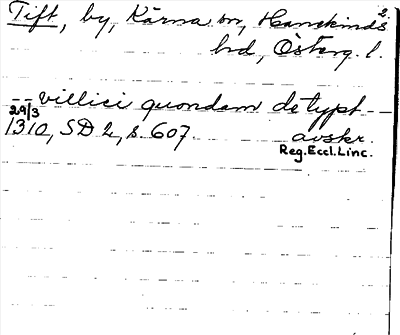 2.
Tift, by, Kärna sn, Hanekinds
hd, Österg. l.
-- villici quondam de typt --
29/3
1310, SD 2, s. 607. avskr.
Reg.Eccl.Linc.